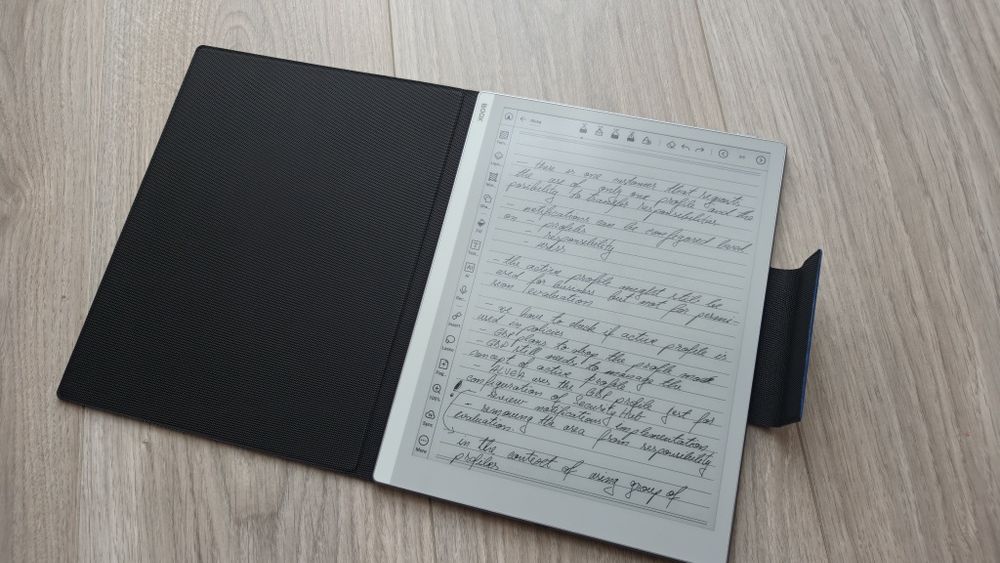 BOOX
Note
- there is one customer that requests
the use of only one profile and the
posibility to transfer responsibilities
- notifications can be configured based
on - profiles
- responsibility
- users
- the active profile might still be
used for business but not for permis-
sion evaluation
- we have to check if active profile is
used in policies
- GBP plans to drop the profile
- GBP still needs to manage the
concept of active profile
- uses the GBP profile just for
configuration of Security Hub
- Review notifications implementation
- removing the area from responsibility
evaluation.
in the context of using group of
profiles
Insert
Lasso
100%
Sync
More